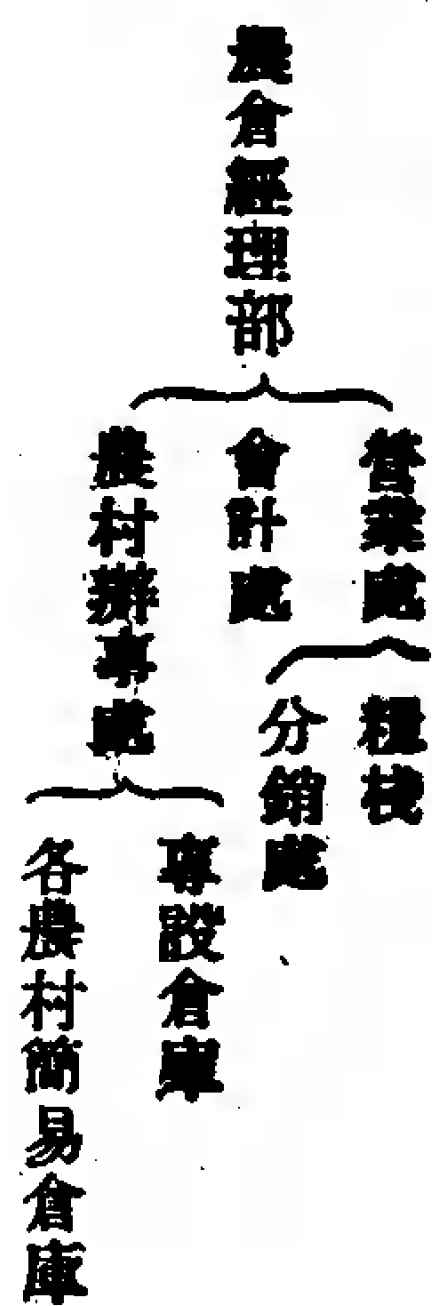 農倉經理部
營業處
糧棧
分銷處
會計處
農村辦事處
專設倉庫
各農村簡易倉庫